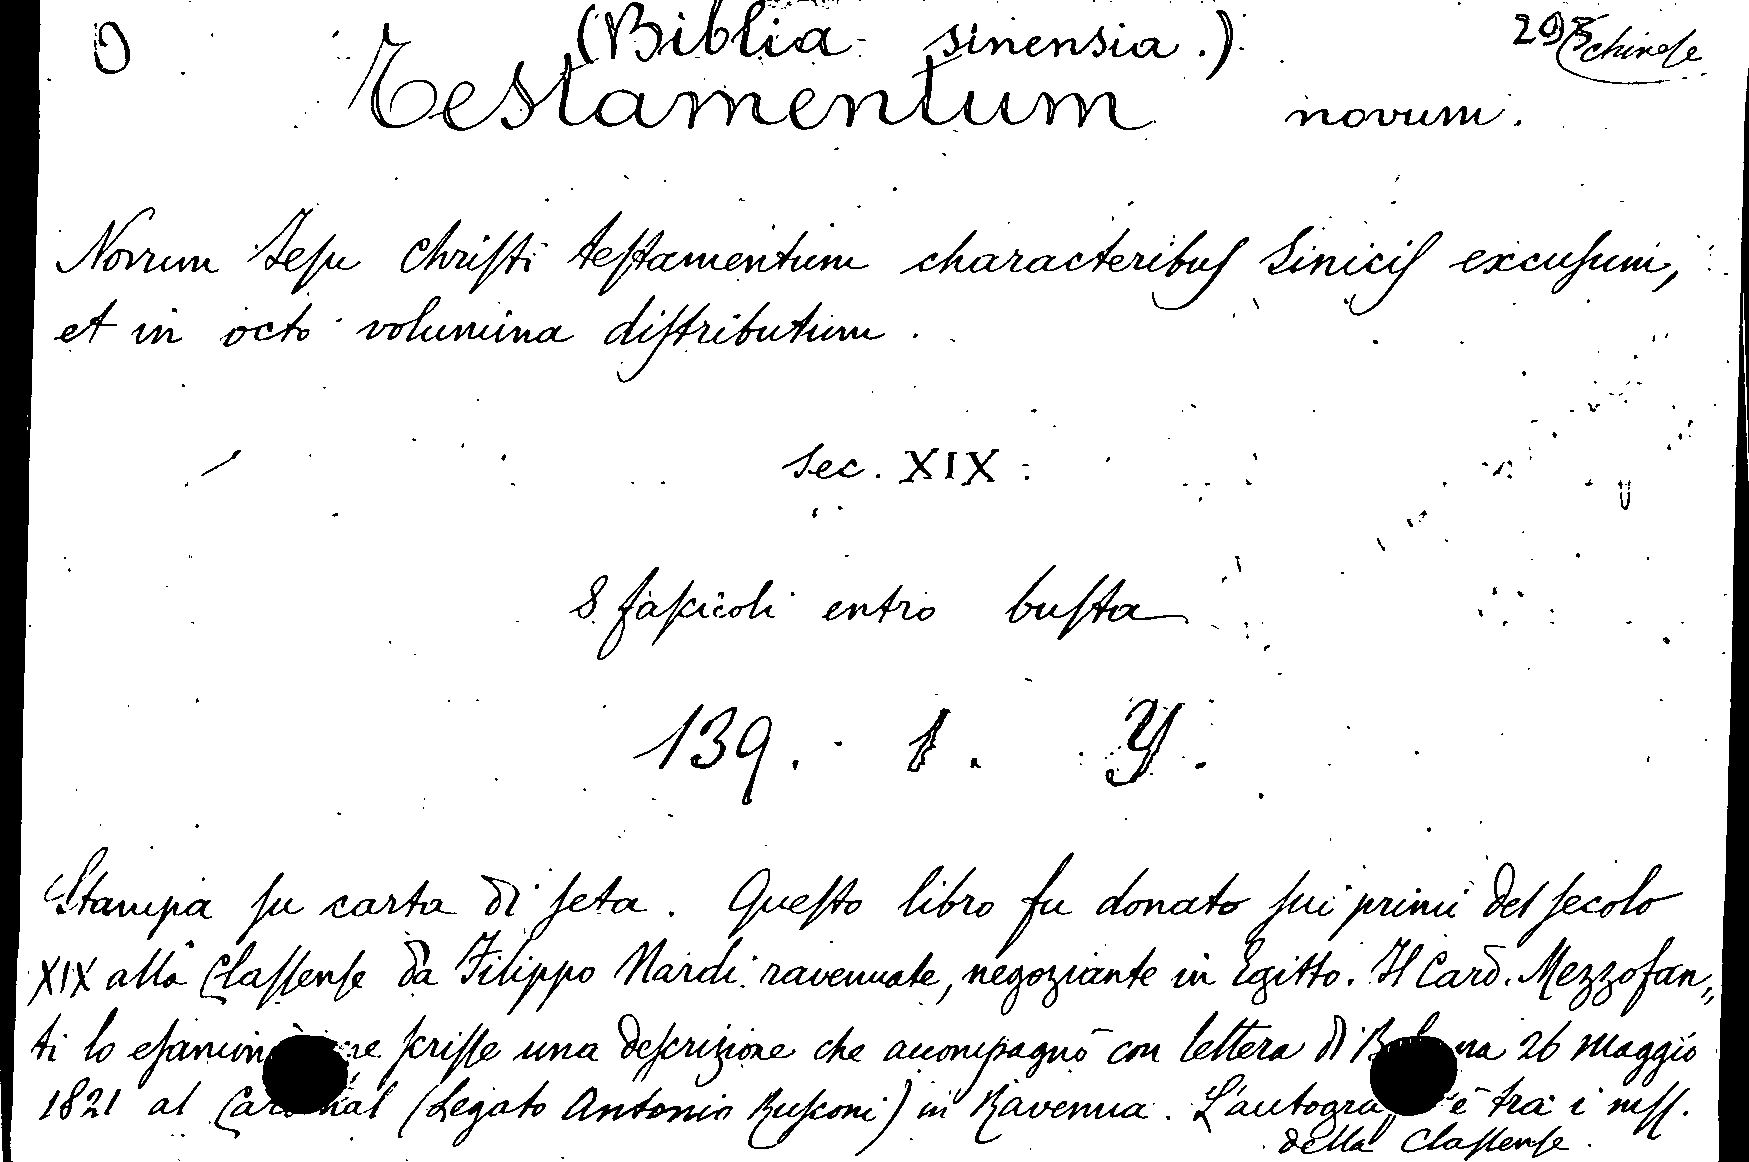 (Biblia sinensia.) 295
chinese
Testamentum novum.
Novum Jesu Christi testamentum characteribus Sinicis excusum,
et in octo volumina distributum.
Sec. XIX.
8 fascicoli entro busta
139. 1. Y.
Stampa su carta di seta. Questo libro fu donato sui primi del secolo
XIX alla Classense da Filippo Nardi ravennate, negoziante in Egitto. Il Card. Mezzofan„
ti lo esamin ne scrisse una descrizione che accompagnò con lettera di B na 26 Maggio
1821 al Car nal (Legato Antonio Rusconi) in Ravenna. L'autogra è tra i mss.
della Classense.